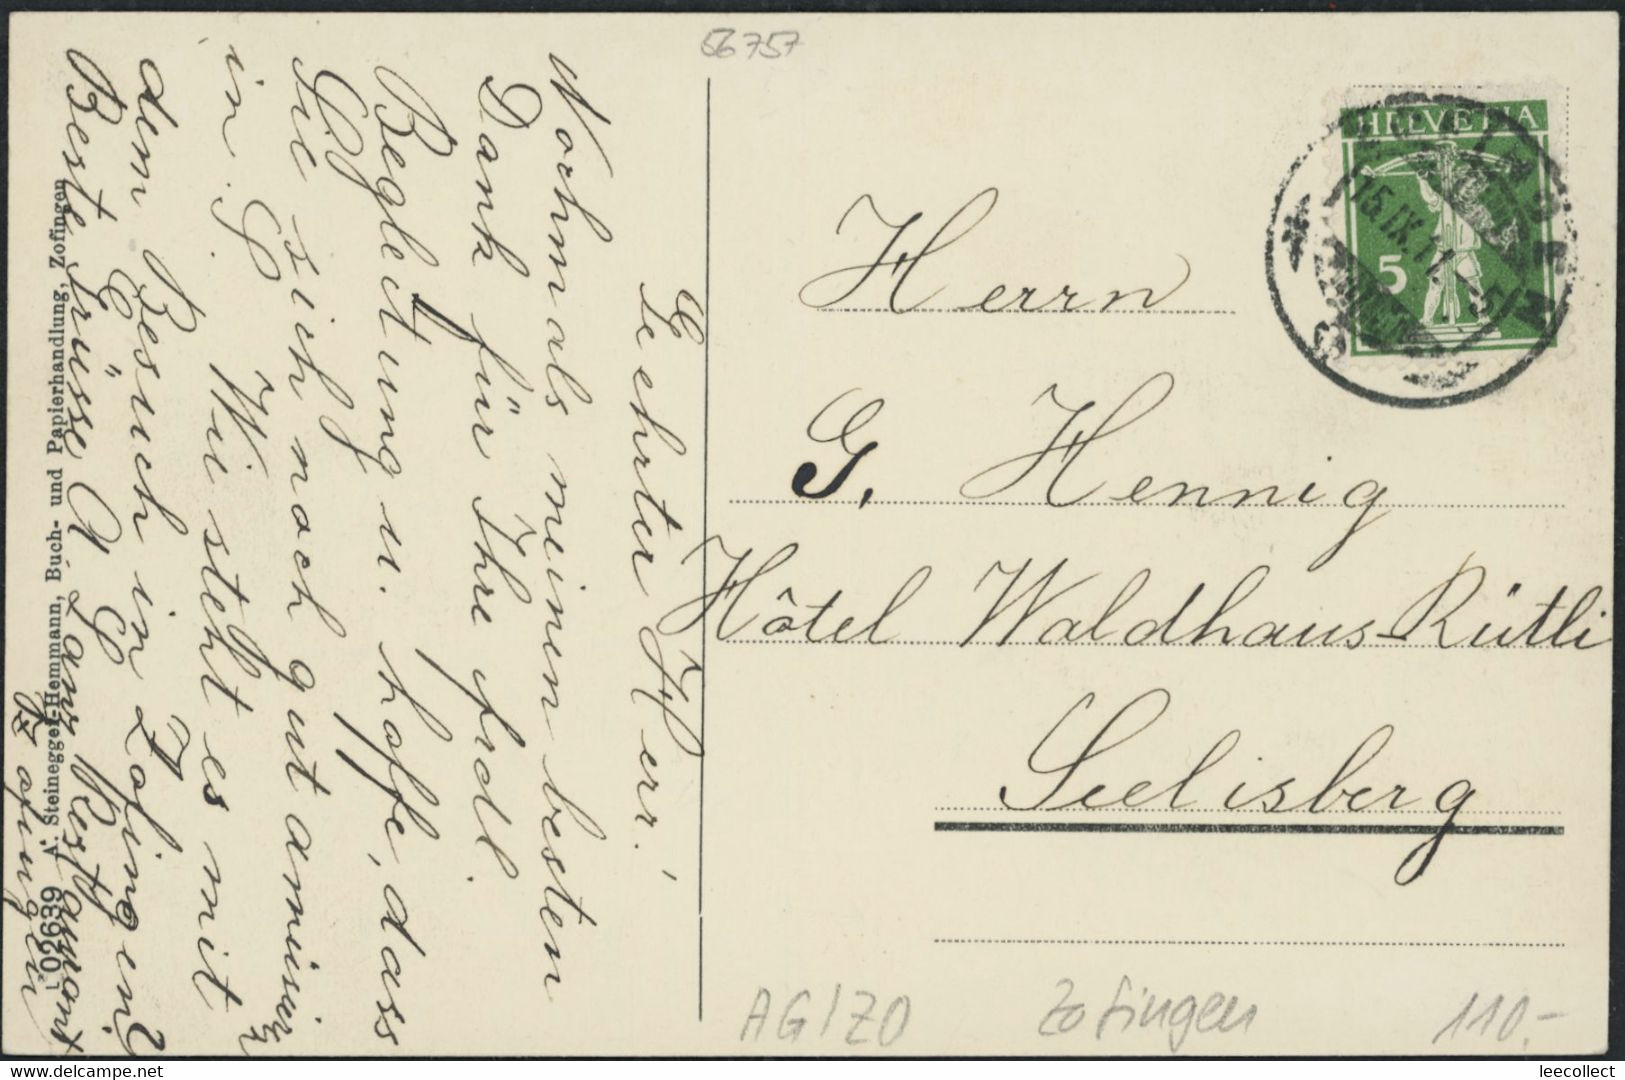 56757
Geehrter Herr!
Nochmals meinen besten
Dank für Ihre frdl.
Begleitung u. hoffe, dass
Sie sich noch gut amüsier
in S. Wi steht es mit
dem Besuch in Zofingen?
Beste Grüsse
Zofingen
02639 A. Steinegger-Hemmann, Buch- und Papierhandlung, Zofingen
HELVETIA
5
15.IX.11.-5
Herrn
G. Hennig
Hôtel Waldhaus-Rütli
Seelisberg
AG/ZO Zofingen 110.-
www.delcampe.net
leecollect